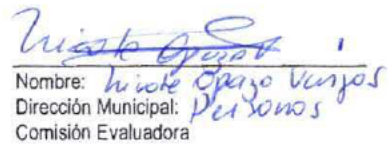 Nicole Opazo
Nombre: Nicole Opazo Vargas
Dirección Municipal: Personas
Comisión Evaluadora